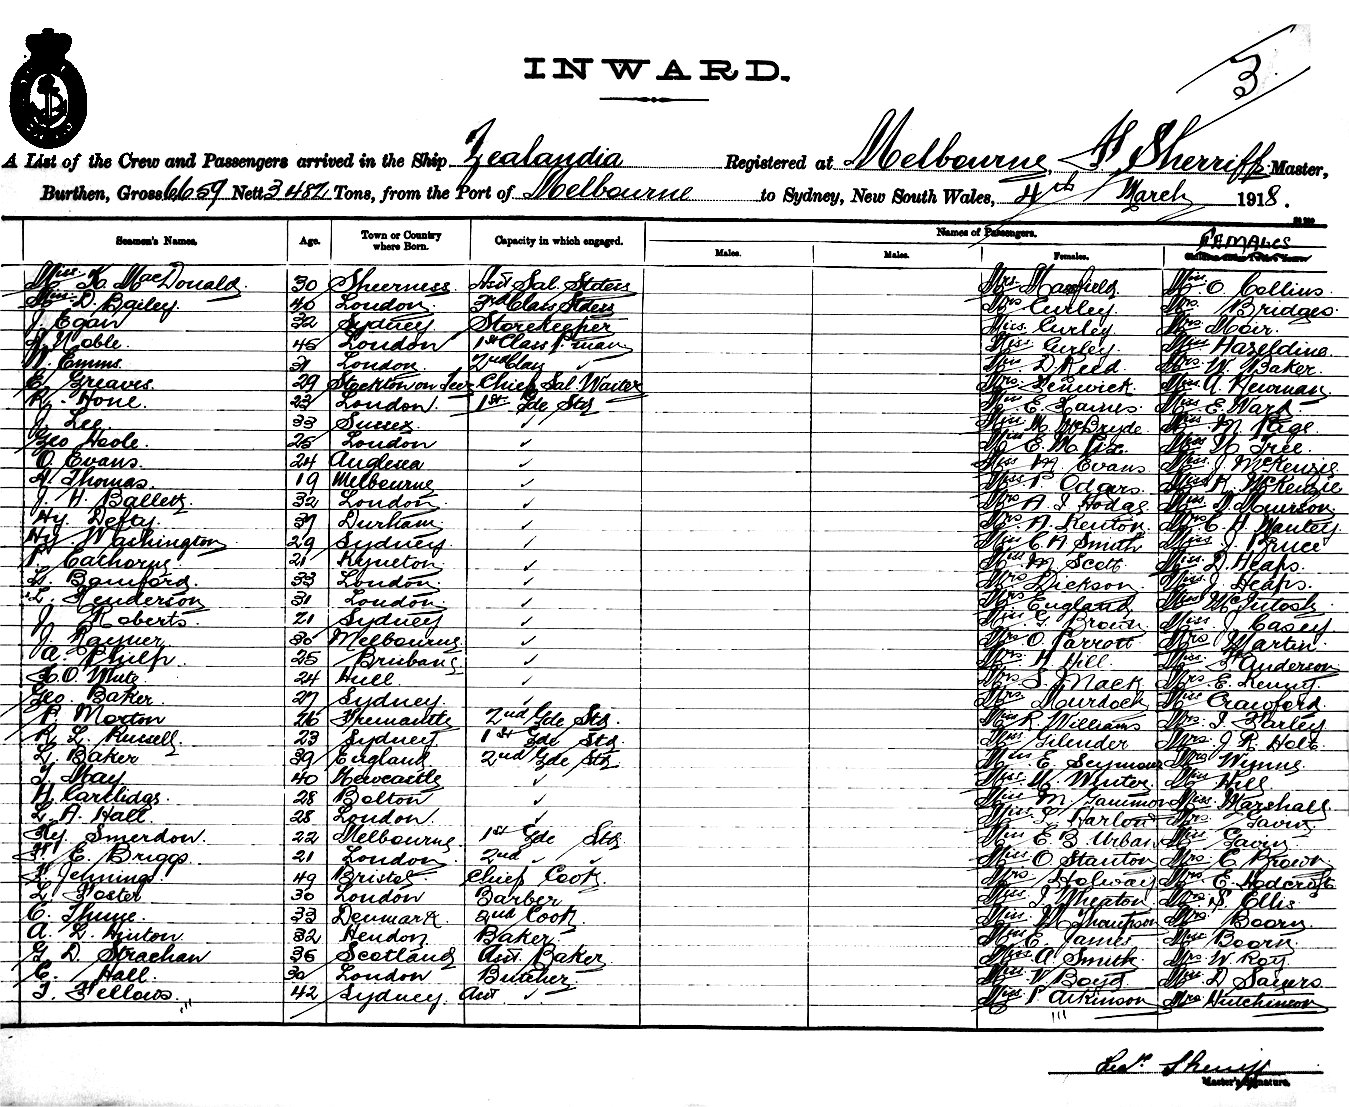 3
INWARD.
A List of the Crew and Passengers arrived in the Ship Zealandia Registered at Melbourne, Sherriff Master,
Burthen, Gross 6659 Nett 3482 Tons, from the Port of Melbourne to Sydney, New South Wales, 4th March 1918.
Seamen's Names. Age. Town or Country where Born. Capacity in which engaged. Names of Passengers.
Males. Males. Females. FEMALES
Miss K. MacDonald 30 Sheerness Sal Stdess Mrs Miss O. Collins
Miss D. Bailey 40 London 3rd Class Stdess Mrs Curley Mrs Bridges
J. Egan 32 Sydney Storekeeper Miss Curley Mrs Moir
Noble 45 London 1st Class P.man Miss Curley Miss Hazeldine
W. Emms 31 London 2nd Class ✓ Miss D Reid Mrs W. Baker
E. Greaves 29 Stockton on Tees Chief Sal Waiter Mrs Fenwick Miss A. Newman
R. Hone 23 London 1st Gde Std Miss E. Eames Miss E. Ward
J. Lee 33 Sussex ✓ Miss McBryde M. Page
Geo Hoole 25 London ✓ Miss E. M. Cox Miss Tree
O. Evans 24 Anglesea ✓ Miss M. Evans Miss J. McKenzie
Thomas 19 Melbourne ✓ Miss P. Odgers Miss McKenzie
J. H. Ballett 32 London ✓ Mrs A. J. Hodag Miss Murison
Hy. Defty 37 Durham ✓ Mrs A. Kenton Mrs C. H. Wantey
Hy Washington 29 Sydney ✓ Miss C. A Smith Miss J. Bruce
P. Cathorne 21 Kyneton ✓ Miss M. Scott Miss D. Heaps
Bamford 33 London ✓ Mrs Dickson Miss J. Heaps
L. Henderson 31 London ✓ Mrs England Miss McIntosh
J. Roberts 21 Sydney ✓ Miss G. Brown Miss J. Casey
J. Rayner 30 Melbourne ✓ Mrs O. Parrott Mrs Martin
A. Philp 25 Brisbane ✓ Mrs H. Hill Miss Anderson
O. White 24 Hull ✓ Mrs S. Mack Mrs E. Kenny
Geo. Baker 27 Sydney ✓ Mrs Murdock Miss Crawford
P. Morton 26 Fremantle 2nd Gde Std. Miss R. Williams Mrs J. Farley
R. L. Russell 23 Sydney 1st Gde Std Miss Gilender Mrs J. R. Holt
L. Baker 39 England 2nd Gde Std Miss E. Seymour Mrs Wynne
J. May 40 Newcastle ✓ Miss M. Winter Miss Hill
H. Cartlidge 28 Bolton ✓ Miss M. Gammon Miss Marshall
L. A. Hall 28 London ✓ Miss Harlow Mrs Gavin
Hy. Smerdon. 22 Melbourne 1st Gde Std Miss E. B. Urban Miss Gavin
E. Briggs 21 London 2nd ✓ ✓ Miss O. Stanton Mrs C. Brown
F. Jennings 49 Bristol Chief Cook Mrs Holway Mrs E. Hodcroft
L. Foster 30 London Barber Miss J. Wheaton Mrs S. Ellis
C. Thune 33 Denmark 2nd Cook Miss M. Thompson Mrs Boorn
A. L. Hinton 32 Hendon Baker Miss E. James Miss Boorn
G. D. Strachan 36 Scotland Asst. Baker Miss A. Smith Mrs W. Roy
C. Hall 30 London Butcher Miss V. Boyd Miss D. Sayers
J. Fellows 42 Sydney Asst ✓ Miss P. Atkinson Mrs Hutchinson
Sherriff
Master's Signature.